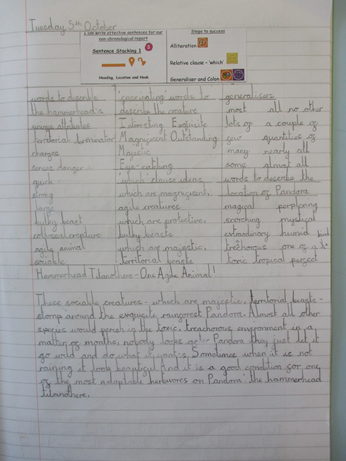 Tuesday 5th October
I can write effective sentences for our non-chronological report
Sentence Stacking 1
Heading, Location and Hook
Steps to success
Alliteration
Relative clause – 'which'
Generaliser and Colon
words to describe fascinating words to generalisers
the hammerhead's describe the creature most all no other
attributes Interesting Exquisite lots of a couple of
territorial Magnificent Outstanding few quantities of
charges Majestic many nearly all
senses danger Eye-catching some almost all
quick 'which' clause ideas words to describe the
strong which are magnificent, location of Pandora
large agile creatures magical
bulky beast which are protective, mystical
colossal creature bulky beasts humid
agile animal which are majestic, one of a
sociable territorial beasts toxic tropical
Hammerhead Titanothere - One Agile Animal!
These sociable creatures - which are majestic, territorial beasts -
stomp around the exquisite rainforest Pandora. Almost all other
species would perish in the toxic, treacherous environment in a
matter of months, nobody looks after Pandora they just let it
go wild and do what it wants. Sometimes when it is not
raining it look beautiful and it is a good condition for one
of the most adaptable herbivores on Pandora: the hammerhead
titanothere.